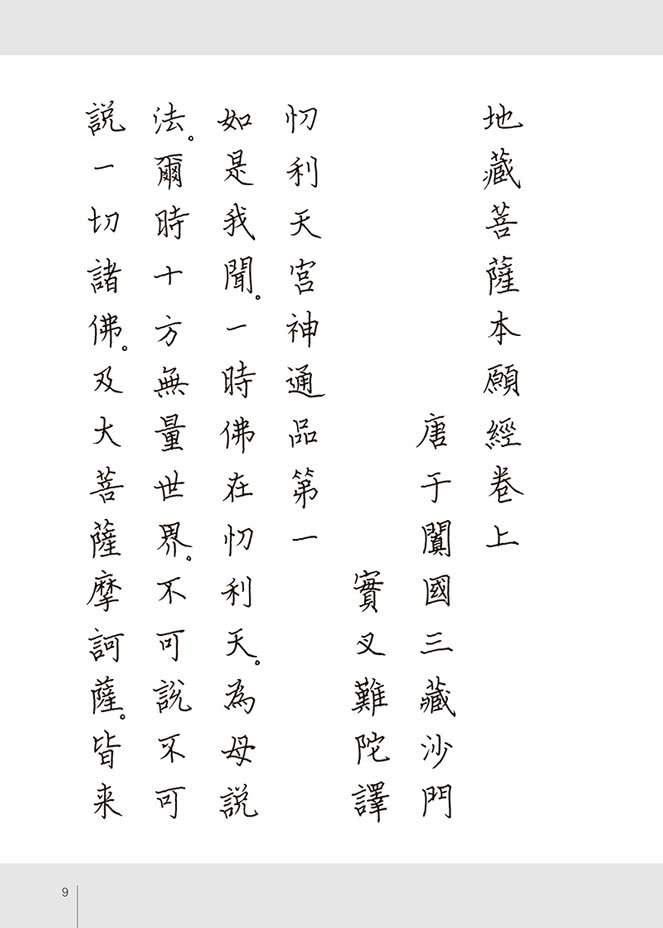 地藏菩薩本願經卷上
唐于闐國三藏沙門
實叉難陀譯
忉利天宮神通品第一
如是我聞。一時佛在忉利天。為母說
法。爾時十方無量世界。不可說不可
說一切諸佛。及大菩薩摩訶薩。皆来
9